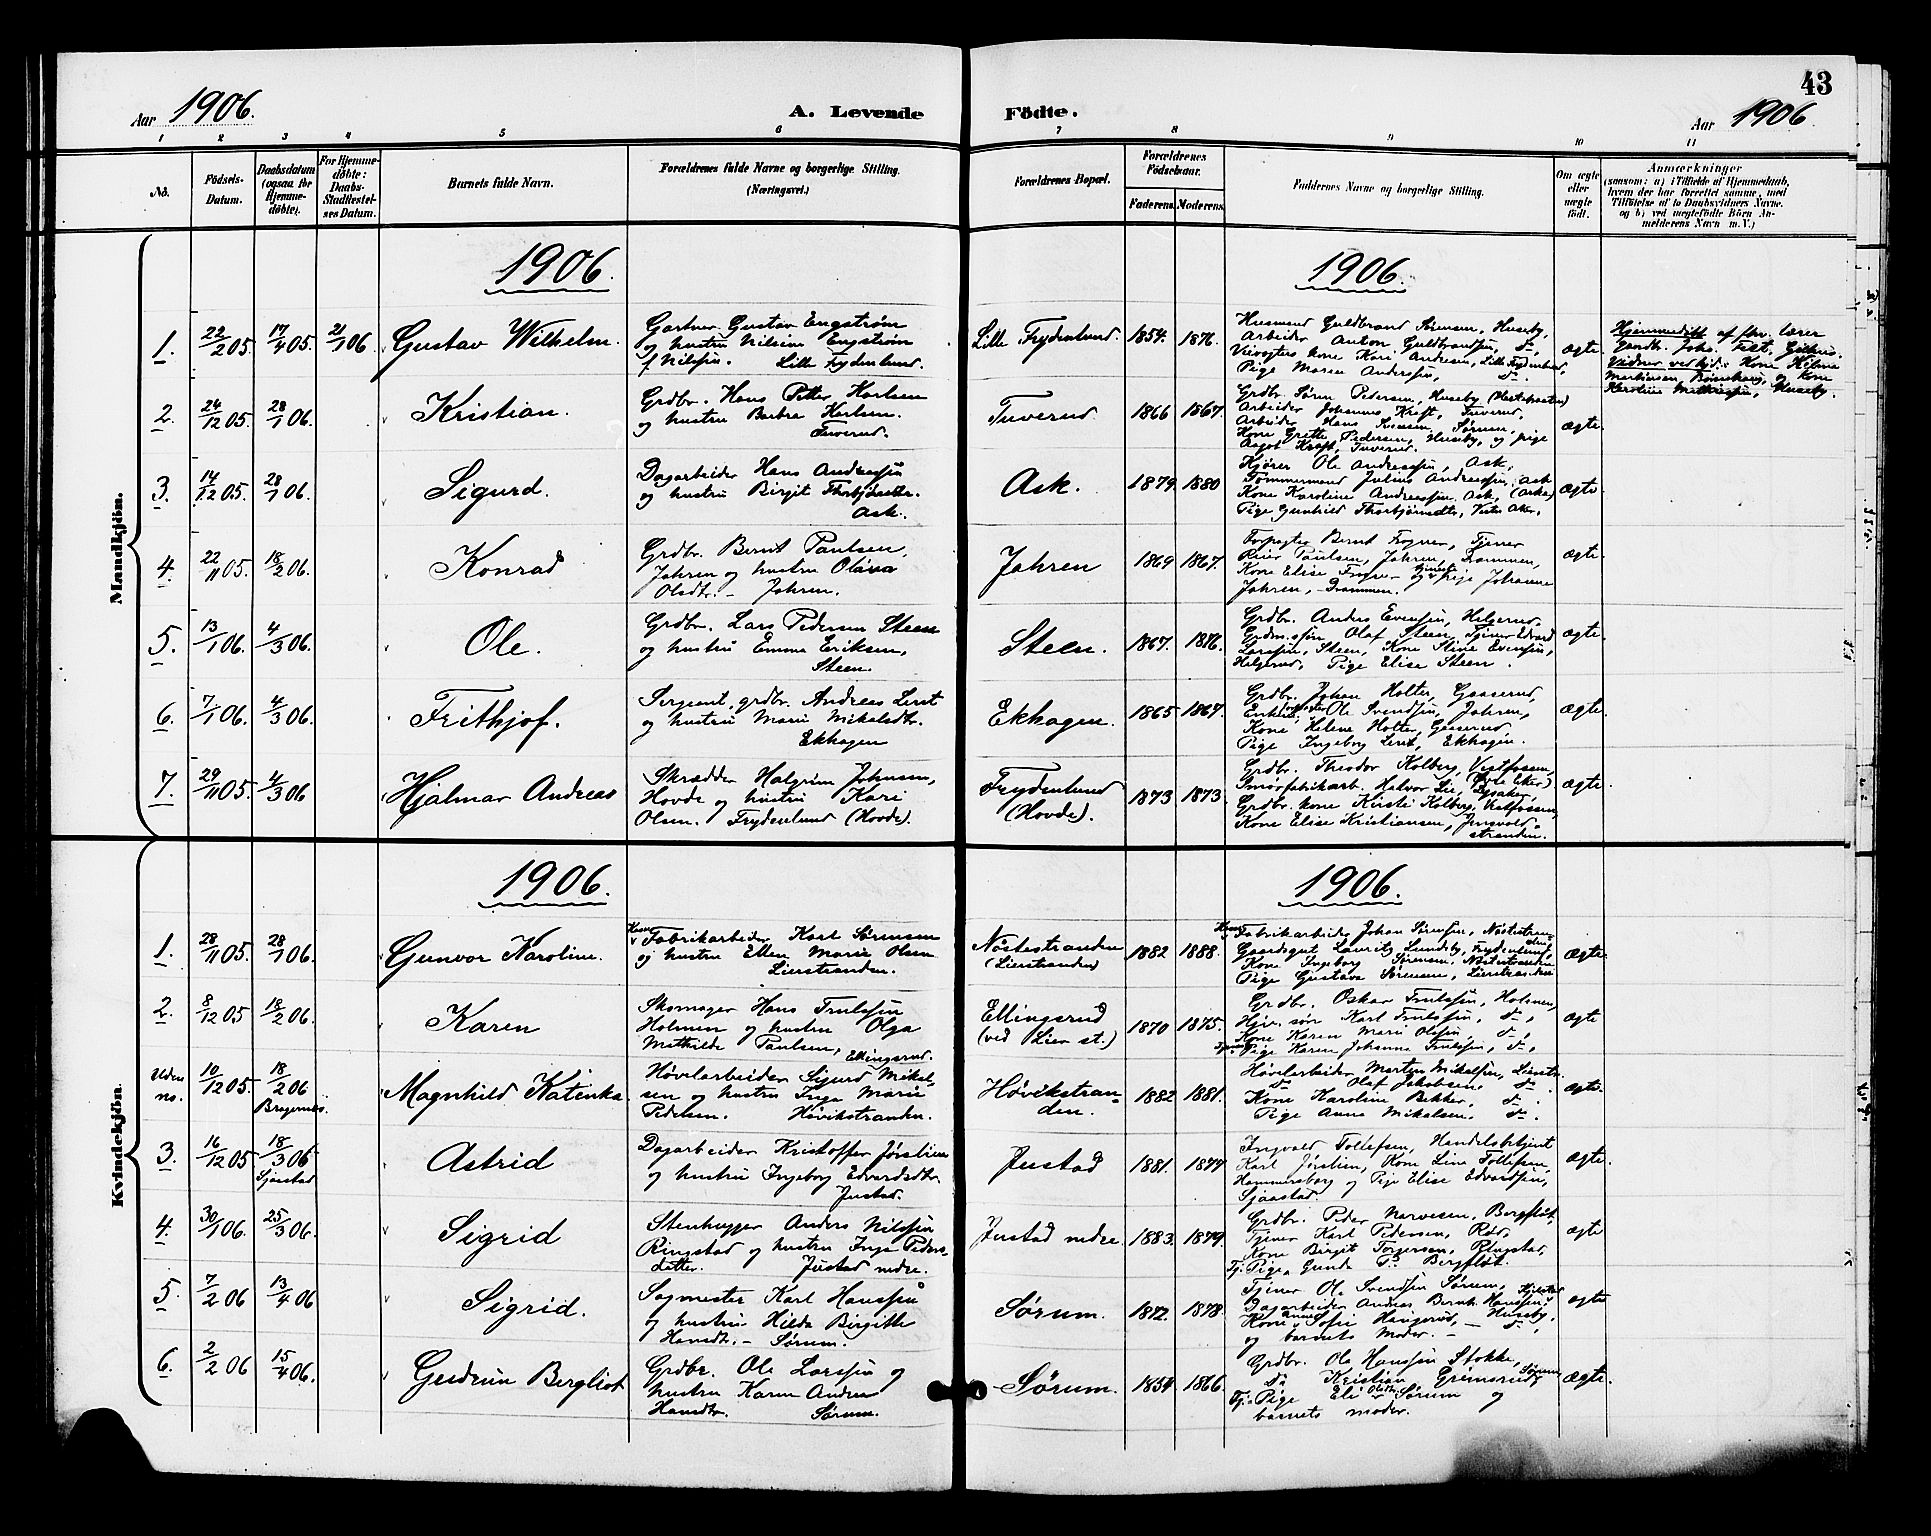 43
Aar 1906.
A. Levende
Födte.
Aar 1906.
1 2 3 4 5 6 7 8 9 10 11
No.
Födsels-
Datum.
Daabsdatum
(ogsaa for
Hjemme-
döbte).
For Hjemme-
döbte:
Daabs-
Stadfæstel-
ses Datum.
Barnets fulde Navn.
Forældrenes fulde Navne og borgerlige Stilling.
(Næringsvei.)
Forældrenes Bopæl.
Forældrenes
Födselsaar.
Faderens.
Moderens.
Faddernes Navne og borgerlige Stilling.
Om ægte
eller
uægte
födt.
Anmærkninger
(saasom: a) i Tilfælde af Hjemmedaab,
hvem der har forrettet samme, med
Tilföielse af to Daabsvidners Navne.
og b) ved uægtefödte Börn An-
melderens Navn m. V.)
Mandkjön.
1906.
1906.
1. 22/2 05. 17/4 05. 21/1 06 Gustav Wilhelm.
Gartner Gustav Engstrøm
og hustru Nilsine Engstrøm
f. Nilsen. Lille Frydenlund.
Lille Frydenlund 1854. 1876.
Husmand Guldbrand Sørensen, Huseby,
Arbeider Anton Guldbrandsen, do,
kone Kari Andersen, Lille Frydenlund,
Pige Maren Anderssen, do.
ægte.
Hjemmedøbt af fhv. lærer
Joh.
Vidner ved hjd.: Kone Helene
Martinsen, og kone
Karoline Mathissen, Huseby.
2. 24/12 05. 28/1 06. Kristian.
Grdbr. Hans Petter Karlsen
og hustru Barbra Karlsen.
Tuverud.
Tuverud. 1866 1867.
Grdbr. Søren Pedersen, Huseby
Arbeider Johannes Kraft, Tuverud,
Arbeider Hans Sørum,
Kone Grette Pedersen, Huseby, og pige
Aagot Kraft, Tuverud.
ægte.
3. 14/12 05. 28/1 06. Sigurd.
Dagarbeider Hans Andreassen
og hustru Birgit Thorbjørnsdtr.
Ask.
Ask. 1879 1880
Kjører Ole Andreassen, Ask,
Tømmermand Julius Andreassen, Ask
Kone Karoline Andreassen, Ask, (Asker)
Pige Gunhild Thorbjørnsdtr, Vestre Aker.
ægte.
4. 22/11 05. 18/2 06. Konrad
Grdbr. Bernt Paulsen,
Jahren og hustru Olava
Olsdtr. – Jahren.
Jahren 1869 1867.
Forpagter Bernt Fogner, Tjener
Reier Paulsen, Jahren, Drammen,
Kone Elise og pige Johanne
Jahren, – Drammen.
ægte
5. 13/1 06. 4/3 06. Ole.
Grdbr. Lars Pedersen Steen
og hustru Emma Eriksen,
Steen.
Steen. 1867. 1876.
Grdbr. Anders Evensen, Helgerud,
Grdm.søn Olaf Steen, Tjener Edvard
Larssen, Steen, Kone Stine Evensen,
Helgerud, Pige Elise Steen.
ægte.
6. 7/1 06. 4/3 06. Frithjof.
Sergeant, grdbr. Andreas
og hustru Marie Mikelsdtr.
Ekhagen
Ekhagen. 1865 1867.
Grdbr. Johan Holter, Gaaserud,
Ole Svendsen, Jahren,
Kone Helene Holter, Gaaserud
Pige Ingeborg Ekhagen.
ægte.
7. 29/11 05. 4/3 06 Hjalmar Andreas
Skrædder Halgrim Johnsen,
Hovde og hustru Kari
Olsen. Frydenlund (Hovde).
Frydenlund
(Hovde). 1873 1873.
Grdbr. Theodor Kolberg, Vestfossen,
(Øvre Eker)
Smørfabrikarb. Halvor Lie, Lysaker,
Grdbr. kone Kirsti Kolberg, Vestfossen,
Kone Elise Kristiansen,
stranden.
ægte.
Kvindekjön.
1906.
1906.
1. 28/11 05. 28/1 06. Gunvor Karoline.
Fabrikarbeider Karl Sørensen
og hustru Ellen Marie Olsen
Lierstranden.
Nøstestranden
(Lierstranden) 1882 1888.
Fabrikarbeider Johan Sørensen, Nøstestran-
den,
Gaardsgut Lauritz Lundeby, Frydenlund,
Kone Ingeborg Sørensen, Nøstestranden
Pige Gustava Sørensen, Lierstranden
ægte.
2. 8/12 05 18/2 06. Karen
Skomager Hans Trulssen
Holmen og hustru Olga
Mathilde Paulsen, Ellingsrud.
Ellingsrud
(ved Lier st.) 1870 1875.
Grdbr. Oskar Trulssen, Holmen,
søn Karl Trulssen, do,
Kone Karen Marie Olssen, do,
Pige Karen Johanne Trulssen, do,
ægte
Uden
no. 10/12 05. 18/2 06
Bragernes. Magnhild Katinka
Høvlarbeider Sigurd Mikel-
sen og hustru Inga Marie
Pedersen. Høvikstranden.
Høvikstran-
den. 1882 1881.
Høvlarbeider Morten Mikelsen, Lierstr.
do Olaf Jakobsen, do.
Kone Karoline Bekker, do.
Pige Anna Mikelsen, do.
ægte.
3. 16/12 05 18/3 06
Sjaastad Astrid
Dagarbeider Kristoffer Jørslien
og hustru Ingeborg Edvardsdtr.
Justad.
Justad 1881. 1877.
Ingvald Tollefsen, Handelsbetjent
Karl Jørslien, Kone Line Tollefsen,
Hammersborg og Pige Elise Edvardsen,
Sjaastad.
ægte.
4. 30/1 06. 25/3 06. Sigrid
Stenhugger Anders Nilssen
Ringstad og hustru Inga Peders-
datter. Justad nedre.
Justad nedre. 1883. 1879.
Grdbr. Peder Narvesen, Bergfløt,
Tjener Karl Pedersen, Rør,
Kone Birgit Torgersen, Ringstad,
Tj. Pige Gunda Bergfløt.
ægte
5. 7/2 06 13/4 06 Sigrid.
Sagmester Karl Hanssen
og hustru Hilda Birgitte
Hansdtr. – Sørum.
Sørum. 1872. 1878.
Tjener Ole Svendsen Sørum,
Dagarbeider Andreas Bernh. Hanssen,
Kone Sofie Haugerud, – Huseby,
og barnets moder. –
ægte
6. 2/2 06 15/4 06. Gudrun Bergliot
Grdbr. Ole Larssen og
hustru Karen Andrea
Hansdtr. Sørum.
Sørum. 1854 1866.
Grdbr. Ole Hanssen Stokke,
do Kristian Grimsrud, Sørum
Tj. Pige Eli Olsdtr. Sørum og
barnets moder.
ægte.